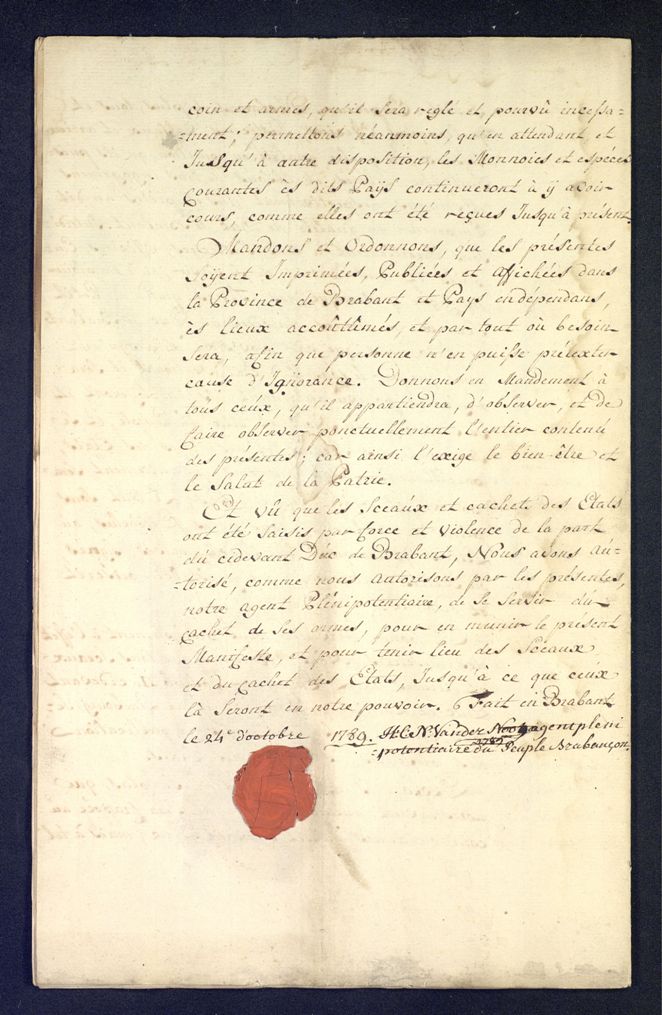 coin et armes, qu'il sera reglé et pourvû incessa-
-ment; permettons néanmoins, qu'en attendant et
Jusqu'à autre disposition, les Monnoies et espéces
Courantes ès dits Païs continueront à ÿ avoir
cours, comme elles ont été reçues Jusqu'à présent.
Mandons et Ordonnons, que les présentes
soÿent Imprimées, Publiées et affichées dans
la Province de Brabant et Pays en dépendans,
ès lieux accoûtûmés, et par tout où besoin
sera, afin que personne n'en puisse prétexter
cause d'Ignorance. Donnons en Mandement à
toûs ceux, qu'il appartiendra, d'observer, et de
faire observer ponctuellement l'entier contenû
des présentes; car ainsi l'exige le bien-être et
le Salut de la Patrie.
Et vû que les Sceaux et cachets des Etats
ont été saisis par force et violence de la part
dû cidevant Duc de Brabant, Nous avons au-
-torisé, comme nous autorisons par les présentes,
notre agent Plénipotentiaire, de se servir dû
cachet de ses armes, pour en munir le présent
Manifeste, et pour tenir lieu des Sceaux
et du Cachet des Etats, Jusqu'à ce que ceux
là seront en notre pouvoir. Fait en Brabant
le 24e d'octobre 1789. H.C.N. Vander Noot agent pleni
-potentiaire du Peuple Brabançon
1789